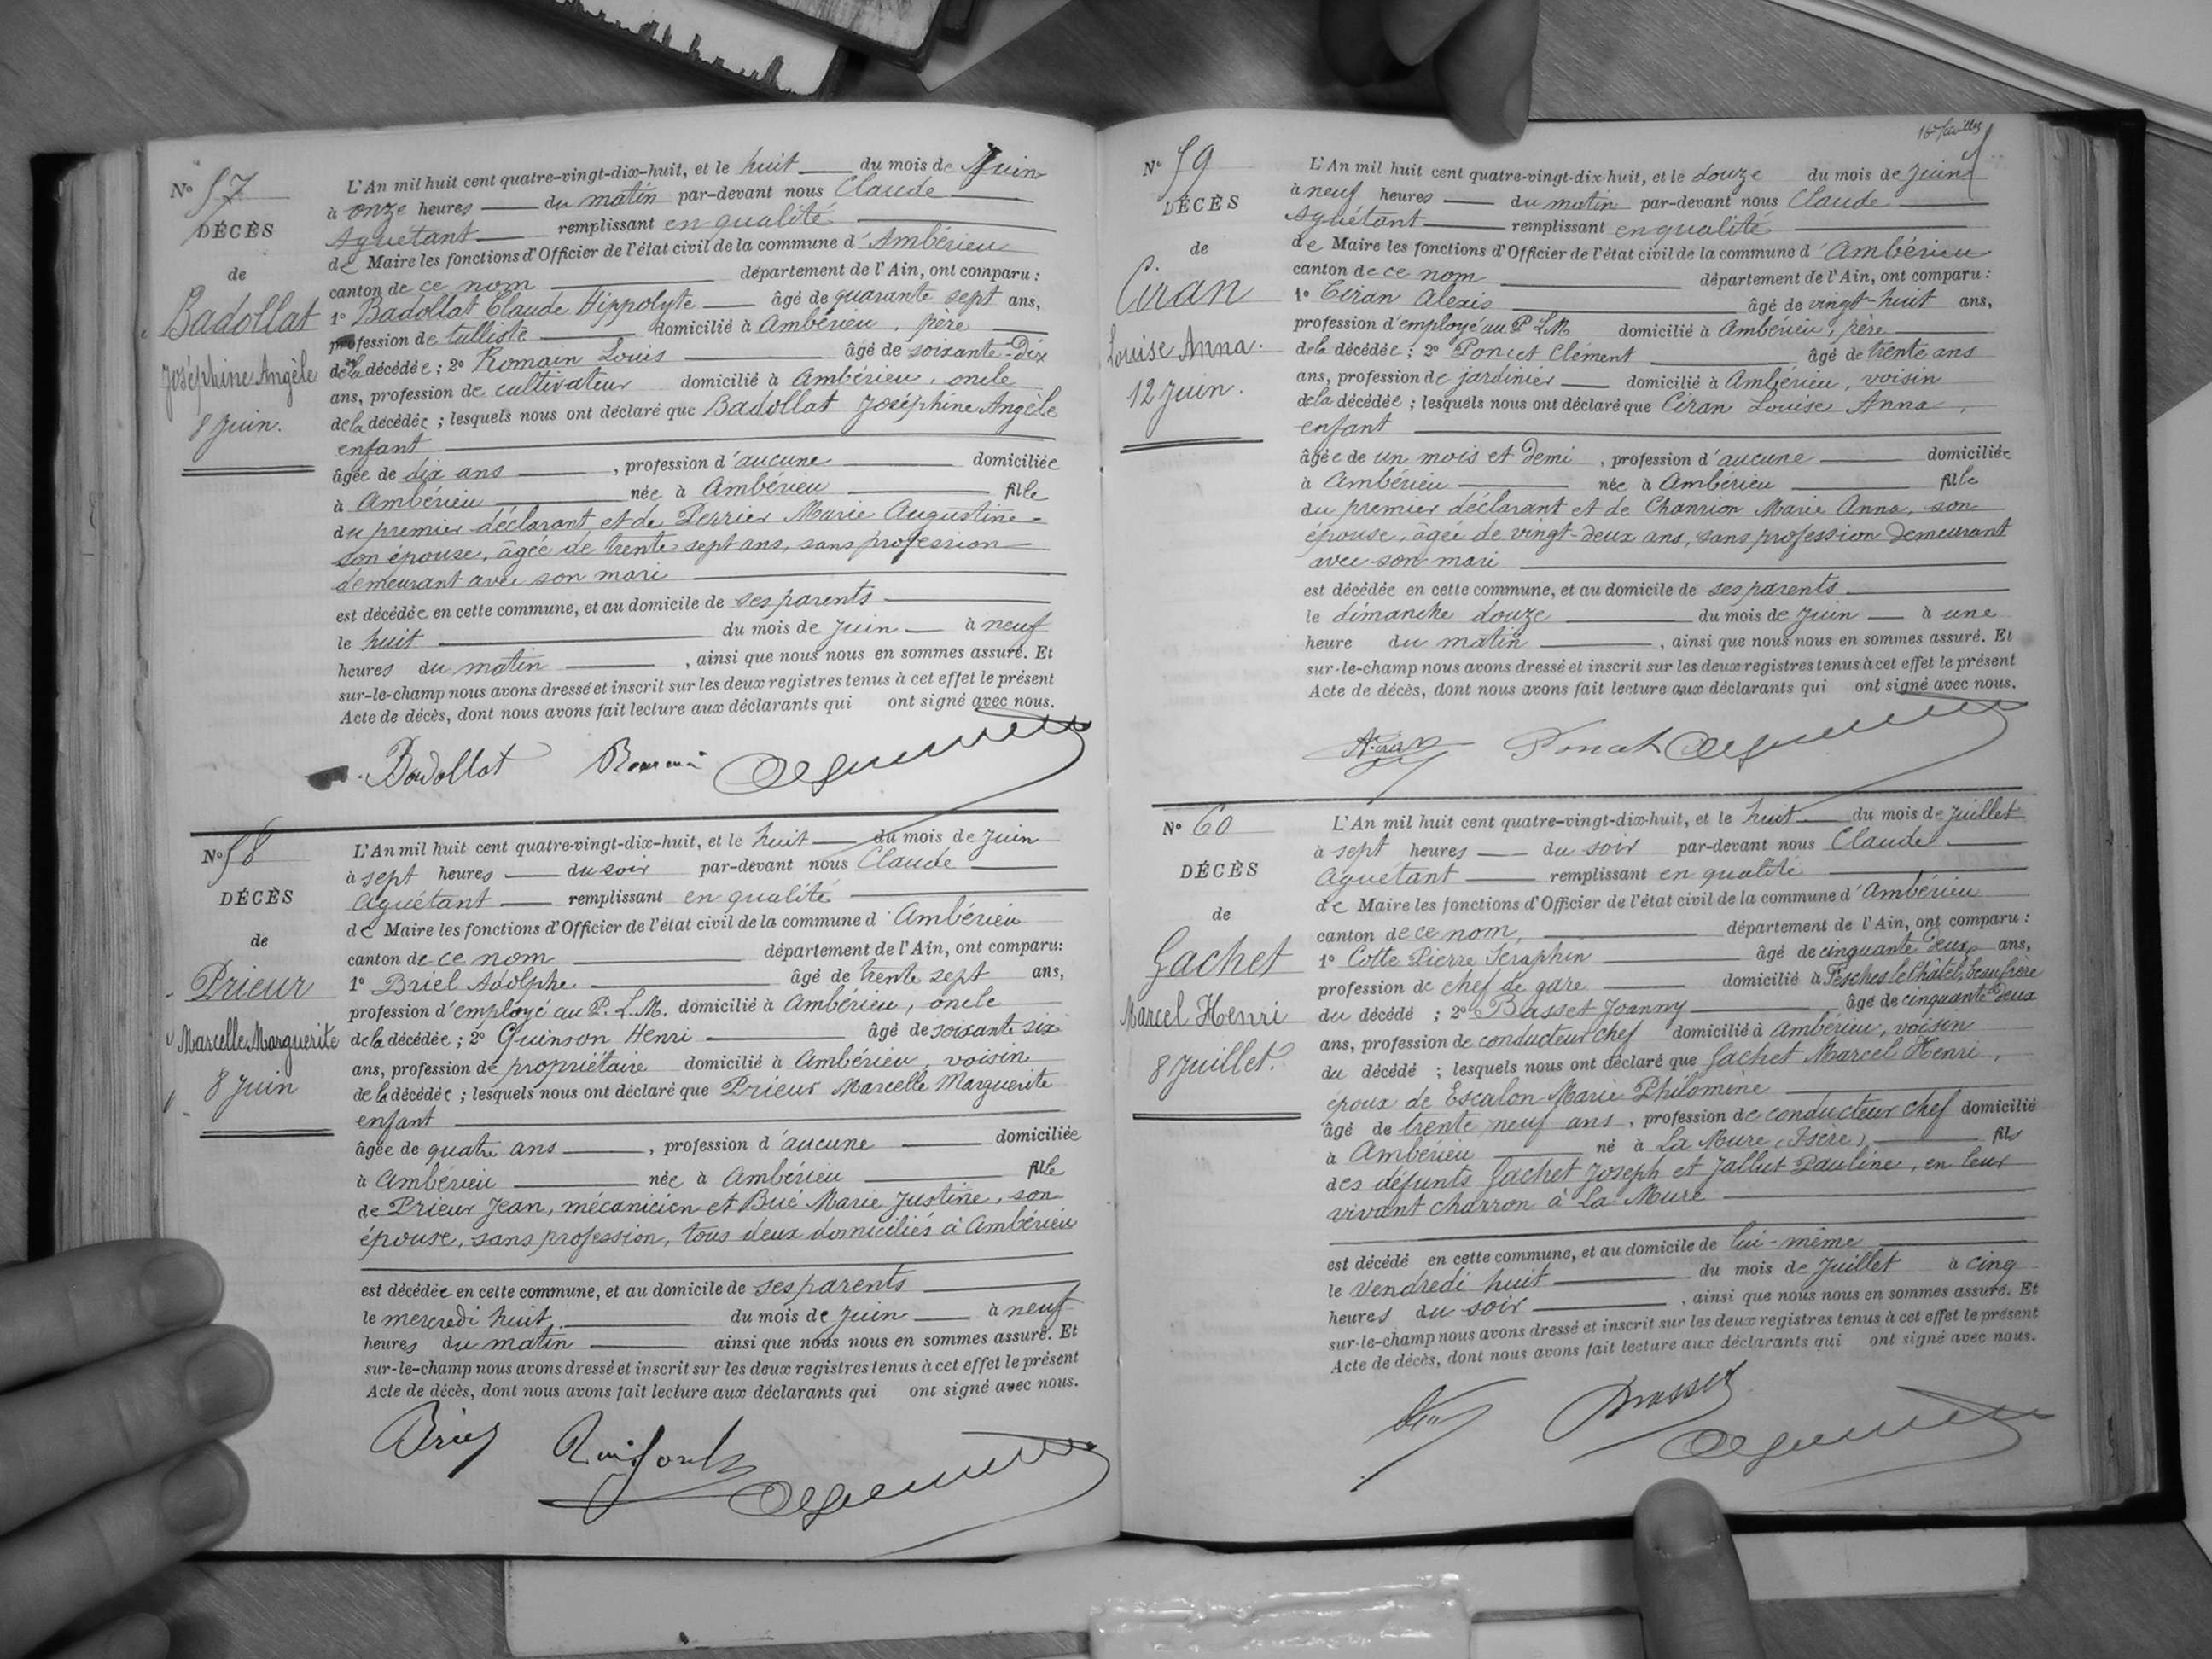 N° 57
DÉCÈS
de
Badollat
Joséphine Angèle
8 Juin.
L'An mil huit cent quatre-vingt-dix-huit, et le huit du mois de Juin
à onze heures du matin par-devant nous Claude
Aguétant remplissant en qualité
de Maire les fonctions d'Officier de l'état civil de la commune d'Ambérieu
canton de ce nom département de l'Ain, ont comparu :
1° Badollat Claude Hippolyte âgé de quarante sept ans,
profession de tulliste domicilié à Ambérieu, père
de la décédée ; 2° Romain Louis âgé de soixante-Dix
ans, profession de cultivateur domicilié à Ambérieu, oncle
de la décédée ; lesquels nous ont déclaré que Badollat Joséphine Angèle
enfant
âgée de dix ans , profession d'aucune domiciliée
à Ambérieu née à Ambérieu fille
du premier déclarant et de Perrier Marie Augustine
son épouse, âgée de trente sept ans, sans profession
demeurant avec son mari
est décédée en cette commune, et au domicile de ses parents
le huit du mois de Juin à neuf
heures du matin , ainsi que nous nous en sommes assuré. Et
sur-le-champ nous avons dressé et inscrit sur les deux registres tenus à cet effet le présent
Acte de décès, dont nous avons fait lecture aux déclarants qui ont signé avec nous.
Badollat Romain
N° 58
DÉCÈS
de
Prieur
Marcelle Marguerite
8 Juin
L'An mil huit cent quatre-vingt-dix-huit, et le huit du mois de Juin
à sept heures du soir par-devant nous Claude
Aguétant remplissant en qualité
de Maire les fonctions d'Officier de l'état civil de la commune d'Ambérieu
canton de ce nom département de l'Ain, ont comparu :
1° Briel Adolphe âgé de trente sept ans,
profession d'employé au P. L. M. domicilié à Ambérieu, oncle
de la décédée ; 2° Quinson Henri âgé de soixante six
ans, profession de propriétaire domicilié à Ambérieu, voisin
de la décédée ; lesquels nous ont déclaré que Prieur Marcelle Marguerite
enfant
âgée de quatre ans , profession d'aucune domiciliée
à Ambérieu née à Ambérieu fille
de Prieur Jean, mécanicien et Bué Marie Justine, son
épouse, sans profession, tous deux domiciliés à Ambérieu
est décédée en cette commune, et au domicile de ses parents
le mercredi huit du mois de Juin à neuf
heures du matin ainsi que nous nous en sommes assuré. Et
sur-le-champ nous avons dressé et inscrit sur les deux registres tenus à cet effet le présent
Acte de décès, dont nous avons fait lecture aux déclarants qui ont signé avec nous.
N° 59
DÉCÈS
de
Ciran
Louise Anna.
12 Juin.
L'An mil huit cent quatre-vingt-dix-huit, et le douze du mois de Juin
à neuf heures du matin par-devant nous Claude
Aguétant remplissant en qualité
de Maire les fonctions d'Officier de l'état civil de la commune d'Ambérieu
canton de ce nom département de l'Ain, ont comparu :
1° Ciran Alexis âgé de vingt-huit ans,
profession d'employé au P L M domicilié à Ambérieu, père
de la décédée ; 2° Poncet Clément âgé de trente ans
ans, profession de jardinier domicilié à Ambérieu, voisin
de la décédée ; lesquels nous ont déclaré que Ciran Louise Anna,
enfant
âgée de un mois et demi , profession d'aucune domiciliée
à Ambérieu née à Ambérieu fille
du premier déclarant et de Chanrion Marie Anna, son
épouse, âgée de vingt-deux ans, sans profession demeurant
avec son mari
est décédée en cette commune, et au domicile de ses parents
le dimanche douze du mois de Juin à une
heure du matin , ainsi que nous nous en sommes assuré. Et
sur-le-champ nous avons dressé et inscrit sur les deux registres tenus à cet effet le présent
Acte de décès, dont nous avons fait lecture aux déclarants qui ont signé avec nous.
Poncet
N° 60
DÉCÈS
de
Gachet
Marcel Henri
8 Juillet.
L'An mil huit cent quatre-vingt-dix-huit, et le huit du mois de Juillet
à sept heures du soir par-devant nous Claude
Aguétant remplissant en qualité
de Maire les fonctions d'Officier de l'état civil de la commune d'Ambérieu
canton de ce nom, département de l'Ain, ont comparu :
1° Cotte Pierre Séraphin âgé de cinquante deux ans,
profession de chef de gare domicilié à Fesches le Châtel, beau frère
du décédé ; 2° Basset Joanny âgé de cinquante deux
ans, profession de conducteur chef domicilié à Ambérieu, voisin
du décédé ; lesquels nous ont déclaré que Gachet Marcel Henri,
époux de Escalon Marie Philomène
âgé de trente neuf ans , profession de conducteur chef domicilié
à Ambérieu né à La Mure (Isère), fils
des défunts Gachet Joseph et Jallut Pauline, en leur
vivant charron à La Mure
est décédé en cette commune, et au domicile de lui-même
le Vendredi huit du mois de Juillet à cinq
heures du soir , ainsi que nous nous en sommes assuré. Et
sur-le-champ nous avons dressé et inscrit sur les deux registres tenus à cet effet le présent
Acte de décès, dont nous avons fait lecture aux déclarants qui ont signé avec nous.